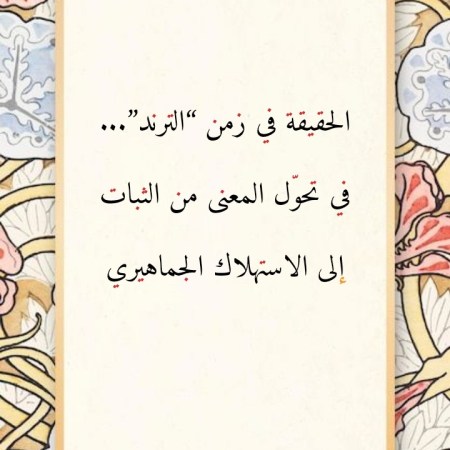 الحقيقة في زمن “الترند”...
في تحوّل المعنى من الثبات
إلى الاستهلاك الجماهيري